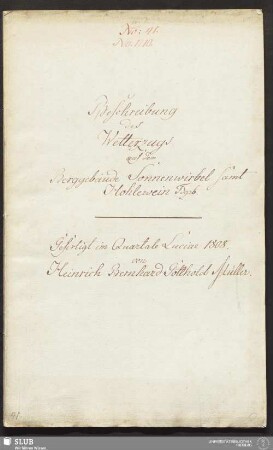 No: 41.
Beschreibung
des
Wetterzugs
auf dem
Berggebäude Sonnenwirbel samt
Hohlewein Fdgb.
Gefertigt im Quartale Luciae 1808.
von
Heinrich Bernhard Gotthold Müller.
SLUB
Wir führen Wissen.